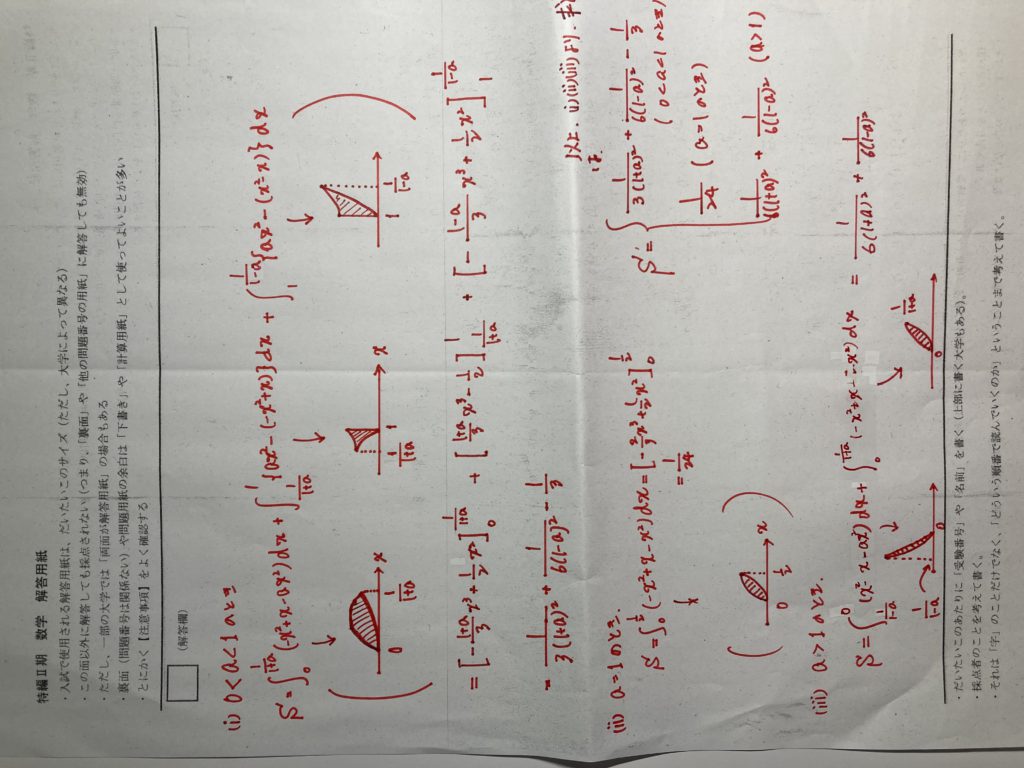 特編Ⅱ期 数学 解答用紙
・入試で使用される解答用紙は、だいたいこのサイズ(ただし、大学によって異なる)
・この面以外に解答しても採点されない(つまり、「裏面」や「他の問題番号の用紙」に解答しても無効)
・ただし、一部の大学では「両面が解答用紙」の場合もある
・裏面(問題番号は関係ない)や問題用紙の余白は「下書き」や「計算用紙」として使ってよいことが多い
・とにかく【注意事項】をよく確認する
(解答欄)
(i) 0<a<1のとき
S = ∫_0^{1/(1+a)} (-x²+x-ax²)dx + ∫_{1/(1+a)}^1 {ax²-(-x²+x)}dx + ∫_1^{1/(1-a)} {ax²-(x²-x)}dx
0 1/(1+a) x
1/(1+a) 1 x
1 1/(1-a)
= [-(1+a)/3 x³ + 1/2 x²]_0^{1/(1+a)} + [(1+a)/3 x³ - 1/2 x²]_{1/(1+a)}^1 + [-(1-a)/3 x³ + 1/2 x²]_1^{1/(1-a)}
= 1/(3(1+a)²) + 1/(6(1-a)²) - 1/3
(ii) a=1のとき.
S = ∫_0^{1/2} (-x²+x-x²)dx = [-2/3 x³ + 1/2 x²]_0^{1/2}
= 1/24
0 1/2 x
(iii) a>1のとき.
S = ∫_{1/(1-a)}^0 (x²-x-ax²)dx + ∫_0^{1/(1+a)} (-x²+x-ax²)dx = 1/(6(1+a)²) + 1/(6(1-a)²)
1/(1-a) 0
0 1/(1+a)
以上.(i)(ii)(iii)より.
は
S = { 1/(3(1+a)²) + 1/(6(1-a)²) - 1/3
(0<a<1のとき)
1/24 (a=1のとき)
1/(6(1+a)²) + 1/(6(1-a)²) (a>1)
・だいたいこのあたりに「受験番号」や「名前」を書く(上部に書く大学もある)。
・採点者のことを考えて書く。
・それは「字」のことだけでなく、「どういう順番で読んでいくのか」ということまで考えて書く。